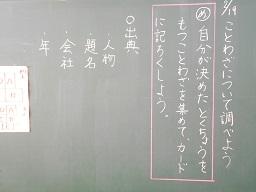 2/19 ことわざについて調べよう
め 自分が決めたとくちょうを
もつことわざを集めて、カード
に記ろくしよう。
○出典
・人物
・題名
・会社
・年